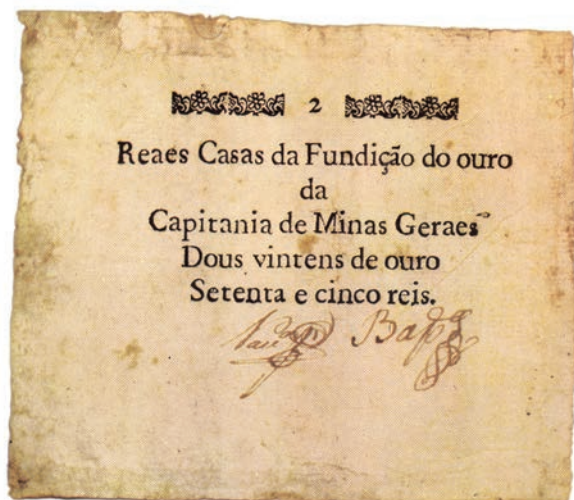 2
Reaes Casas da Fundição do ouro
da
Capitania de Minas Geraes
Dous vintens de ouro
Setenta e cinco reis.